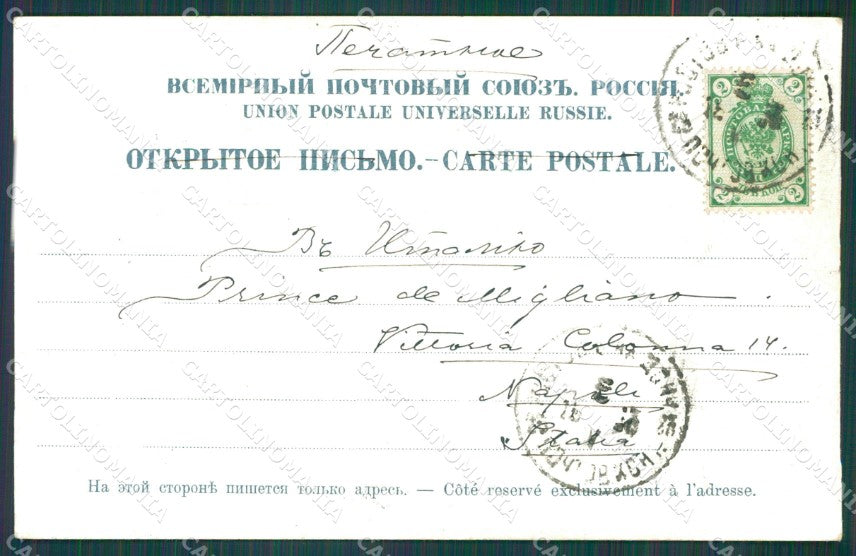 Печатное
ВСЕМІРНЫЙ ПОЧТОВЫЙ СОЮЗЪ. РОССІЯ.
UNION POSTALE UNIVERSELLE RUSSIE.
ОТКРЫТОЕ ПИСЬМО.-CARTE POSTALE.
2 2
2 2
Въ Италію
Prince de Migliano.
Vittoria Colonna 14.
Napoli
Italia
На этой сторонѣ пишется только адресъ. — Côté reservé exclusivement à l'adresse.
CARTOLINOMANIA